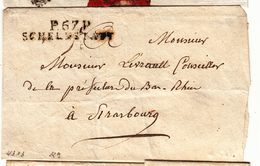 P.67.P
SCHELESTATT
Monsieur
Monsieur Levrault Conseiller
de la préfecture du Bas Rhin
à Strasbourg